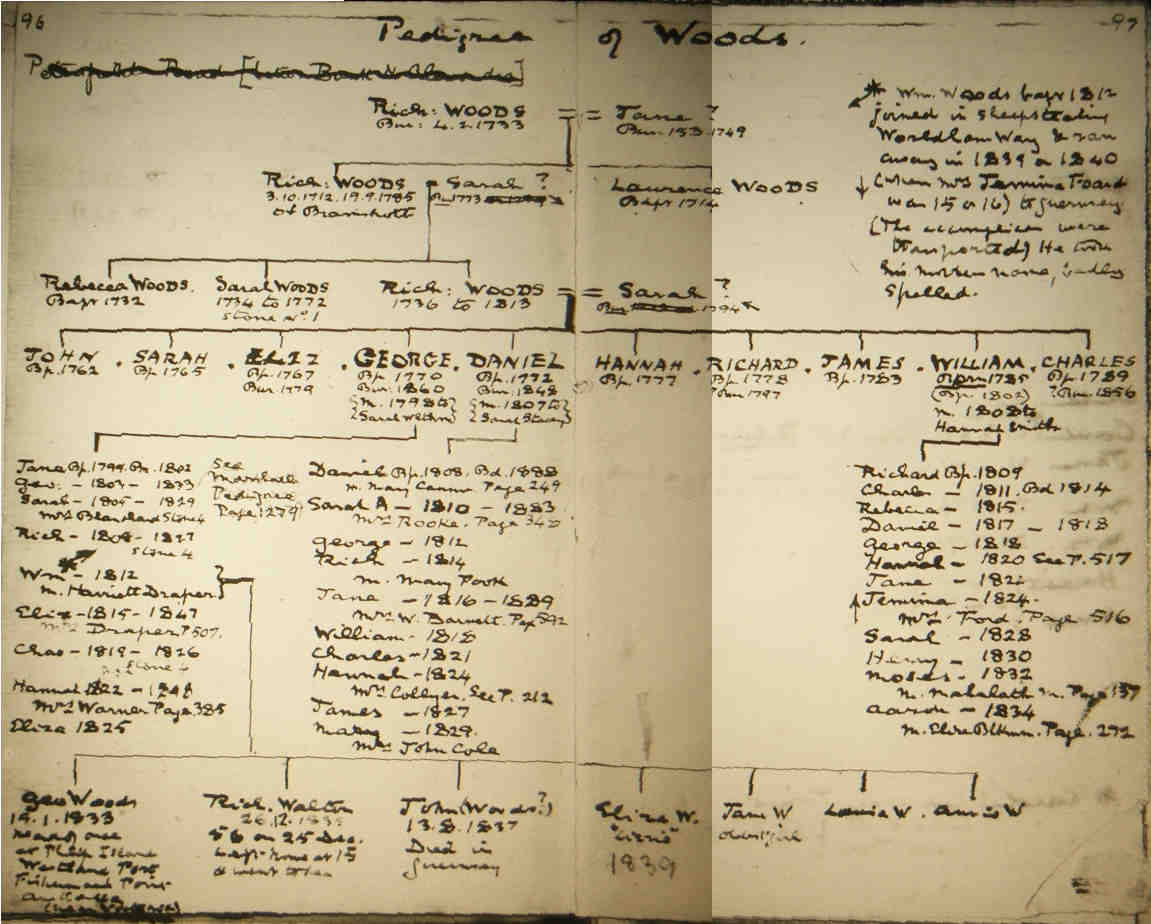 96
97
Pedigree of Woods.
Rich: WOODS = = Jane ?
Bur: 4.2.1733
Bur. 1749
Wm. Woods bapt 1812
joined in Sheepstealing
Worldham Way & ran
away in 1839 or 1840
(when Mrs Jemima Foard
was 15 or 16) to Guernsey
(The accomplices were
transported) He took
his mother's name, badly
spelled.
Rich: WOODS = Sarah ?
3.10.1712. 19.9.1785
of Bramshott
Lawrence WOODS
Bapt 1714
Rebecca WOODS.
Bapt 1732
Sarah WOODS
1734 to 1772
Stone No. 1
Rich: WOODS = = Sarah ?
1736 to 1813
JOHN . SARAH . . GEORGE . DANIEL HANNAH . RICHARD . JAMES . WILLIAM . CHARLES
Bp. 1762
Bp. 1765
Bp. 1767
Bur. 1779
Bp. 1770
Bur. 1860
m. 1798 to
Bp. 1772
Bur. 1848
m. 1807 to
Sarah Stacey
Bp. 1777
Bp. 1778
Bur 1797
Bp. 1783
Born 1785
(Bp. 1802)
m. 1808 to
Hannah Smith
Bp. 1789
? Bur. 1856
Jane Bp. 1799. Bu. 1802
Geo: - 1803 - 1833
Sarah - 1805 - 1829
Mrs Blanchard Stone 4
Rich - 1808 - 1827
Stone 4
Wm - 1812
m. Harriett Draper
Eliz - 1815 - 1847
Mrs Draper P 507.
Chas - 1819 - 1826
Stone 4
Hannah 1822
Mrs Warner Page 385
Eliza 1825
See
Pedigree
Page 279
Daniel Bp. 1808. Bd. 1888
m. Mary Page 249
Sarah A - 1810 - 1883
Mrs Rooke. Page
George - 1812
Rich - 1814
m. Mary Pook
Jane - 1816 - 1889
Mrs W. Barnett.
William - 1818
Charles - 1821
Hannah - 1824
Mrs Collyer. See P. 212
James - 1827
Mary - 1829.
Mrs John Cole
Richard Bp. 1809
Charles - 1811. Bd 1814
Rebecca - 1815.
Daniel - 1817 - 1818
George - 1818
Hannah - 1820 See P. 517
Jane -
Jemima - 1824.
Mrs Ford. Page 516
Sarah - 1828
Henry - 1830
Moses - 1832
m. Mahalath m. Page 137
Aaron - 1834
m. Eliza Page. 272
Geo Woods
1.1833
Rich. Walter
25 Dec.
Left home at 15
& went to sea
John (Woods?)
13.8.1837
Died in
Guernsey
Eliza W.
1839
Jane W
Louisa W. Annie W